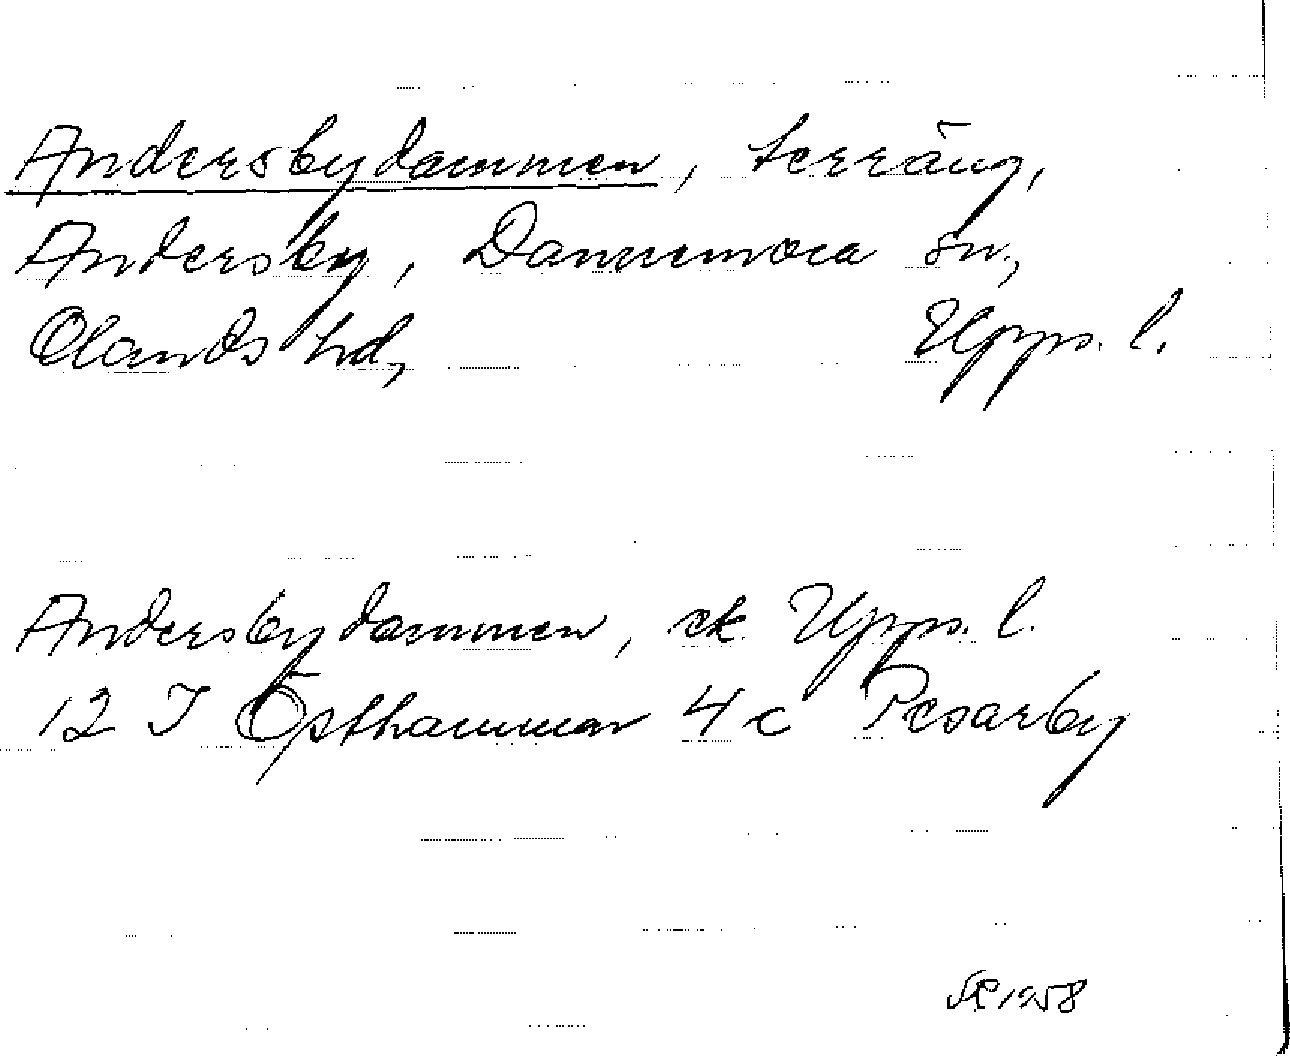 Andersbydammen, terräng,
Andersby, Dannemora sn,
Olands hd, Upps. l.
Andersbydammen, ek Upps. l.
12 I Östhammar 4 c Pesarby
1958